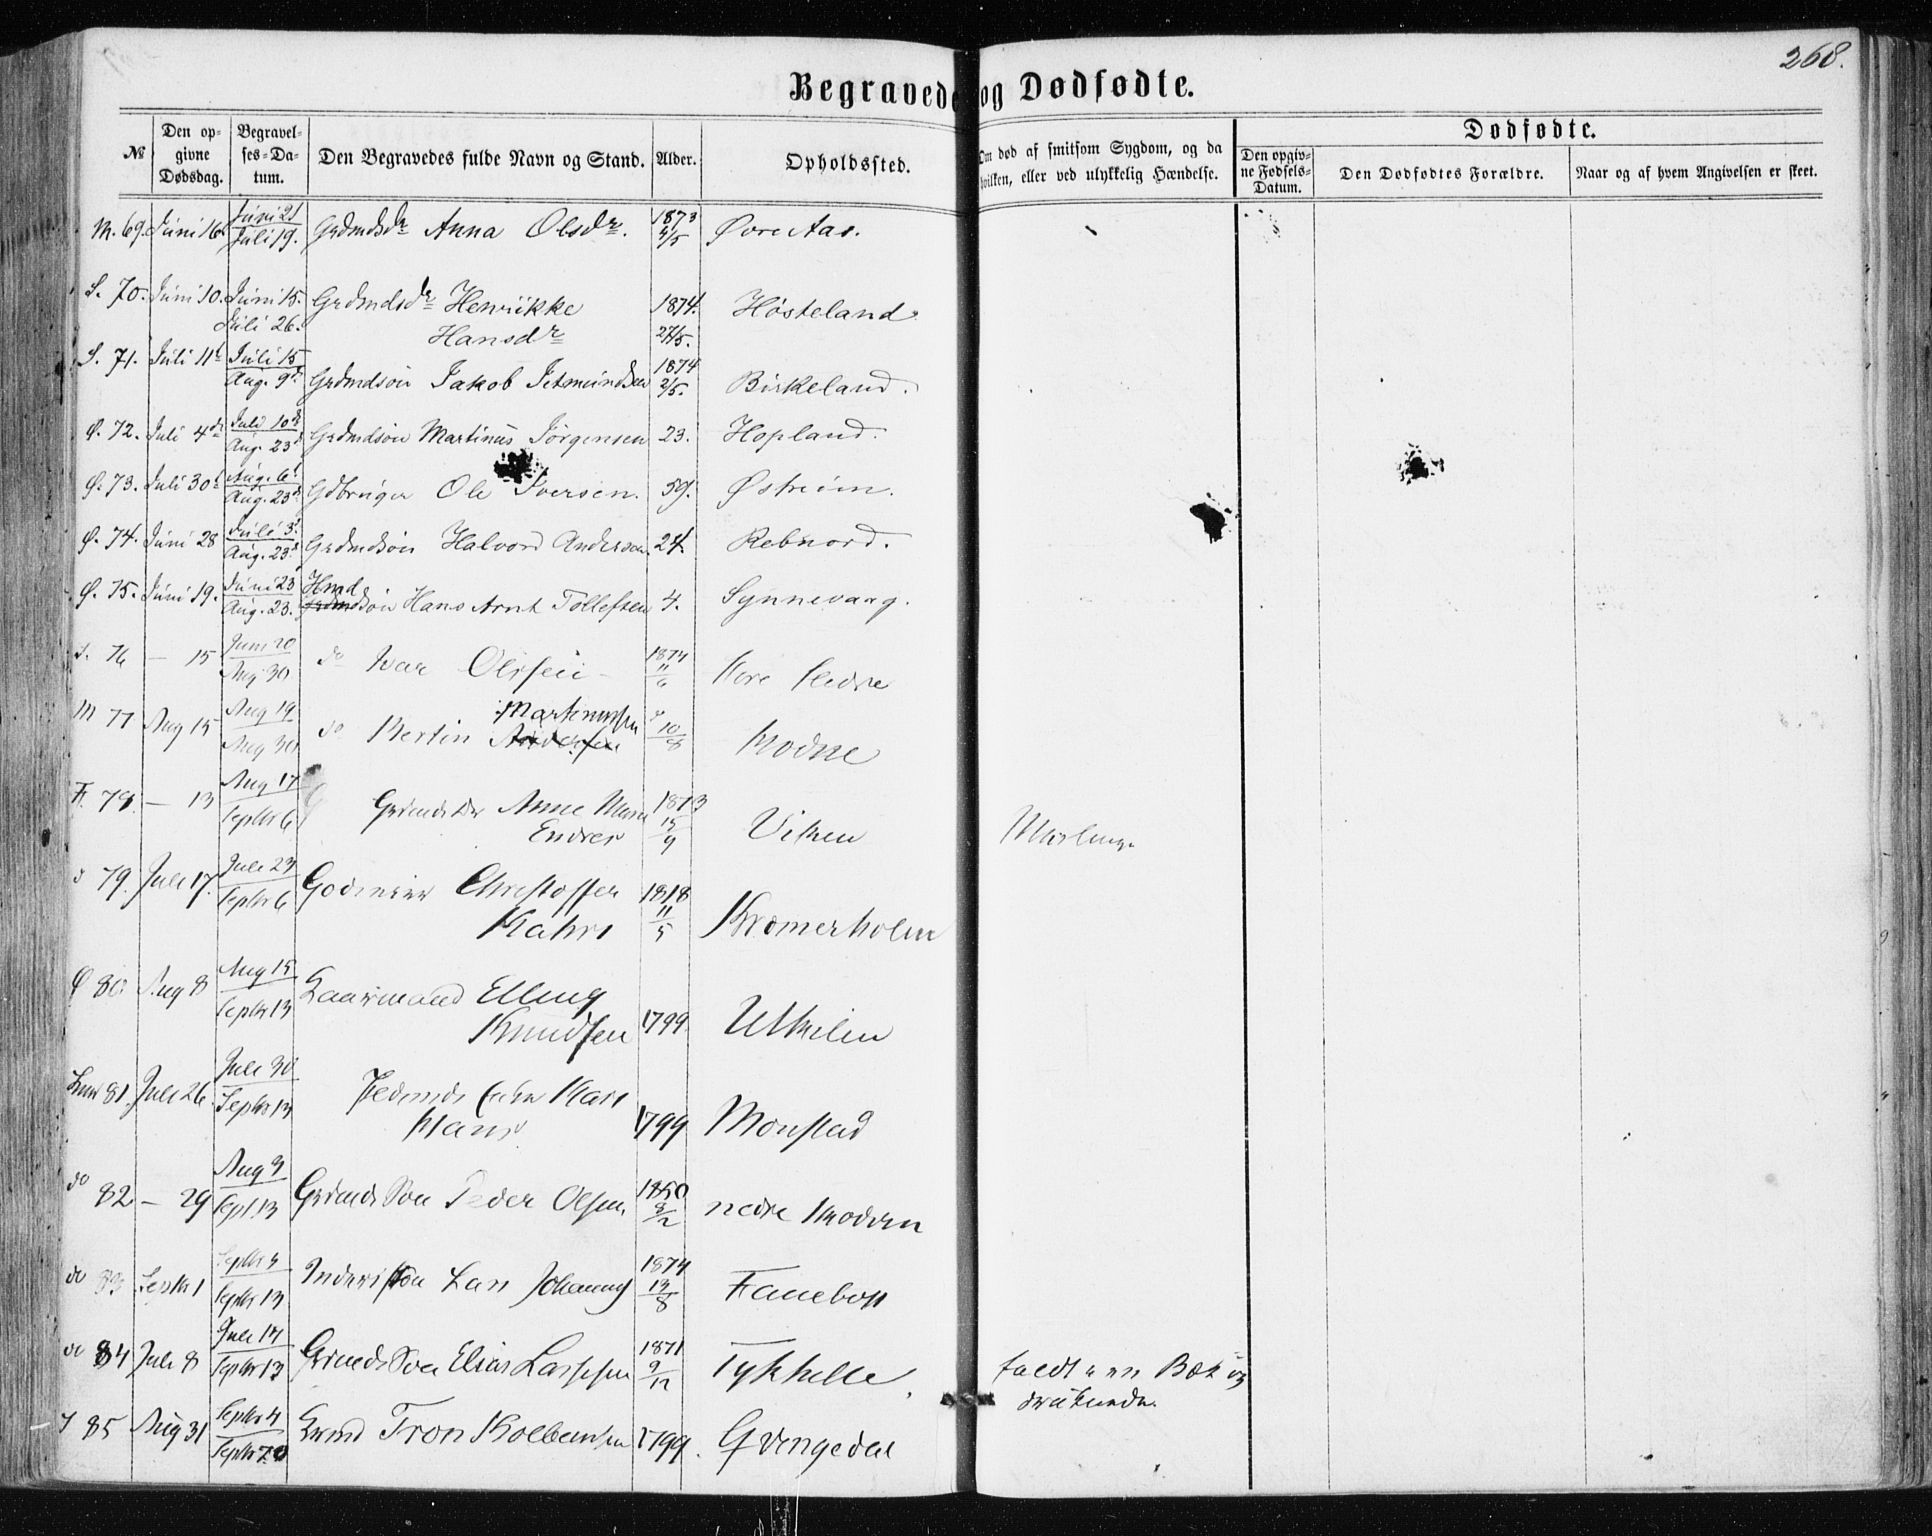 268.
Begravede og Dødfødte.
№
Den opgivne Dødsdag.
Begravelses-Datum.
Den Begravedes fulde Navn og Stand.
Alder.
Opholdssted.
Om død af smitsom Sygdom, og da hvilken, eller ved ulykkelig Hændelse.
Dødfødte.
Den opgivne Fødsels-Datum.
Den Dødfødtes Forældre.
Naar og af hvem Angivelsen er skeet.
M. 69. Juni 16 Juni 21 Juli 19. Grdmdsdr Anna Olsdr. 1873 4/5 Øvre Aas.
S. 70. Juni 10. Juni 15. Juli 26. Grdmdsdr Henrikke 1874. Høsteland
Hansdr 27/5.
S. 71. Juli 11 Juli 15 Aug. 9 Grdmdsøn Jakob Jetmundsen 1874 2/5. Birkeland.
Ø. 72. Juli 4de Juli 10de Aug. 23d Grdmdsøn Martinus Jørgensen 23. Hopland.
Ø. 73. Juli 30 Aug. 6 Aug. 23d Gdbruger Ole Iversen. 59. Østreim.
Ø. 74. Juni 28 Juli 3 Aug. 23d Grdmdsøn Halvord Andersen. 24. Rebnord.
Ø. 75. Juni 19. Juni 23 Aug. 23. Hmdsøn Hans Arnt Tollefsen 4. Synnevaag.
S. 76 — 15 Juni 20 Aug 30 do Ivar Olssen 1874 11/6
M 77 Aug 15 Aug 19 Aug 30 do Bertin Martinussen Andersen 10/8
F. 78 — 13 Aug 17 Septbr 6 Grdmds Dtr Anne Marie 1873 Viken
Endres 15/9
79. Juli 17. Juli 23 Septbr 6 Godseier Christoffer 1818 Kræmerholm
Kahrs 11/5
Ø 80. Aug 8 Aug 15 Septbr 13 Elling
Knudsen 1799
81. Juli 26 Juli 30 Septbr 13 Kari
Hans 1799 Monstad
do 82 — 29 Aug 3 Sept. 13 Grdmds Søn Peder Olsen 1850 nedre
do 83 Septbr 1 Septbr 4 Septbr 13 Lars Johannes 1874 13/8 Fanebost
do 84 Juli 8 Juli 14 Septbr 13 Grdmds Søn Elias Lassesen 1871 9/12 Tykhelle faldt i en Bæk og
druknede.
85 Aug 31 Septbr 4 Septbr 20 Tron Kolbensen 1799. Qvingedal